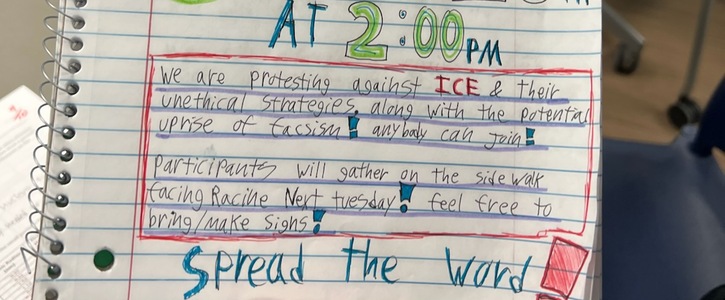 AT 2:00 PM
We are protesting against ICE & their
unethical strategies, along with the potential
uprise of facsism! anybody can join!
Participants will gather on the side walk
facing Racine Next tuesday! feel free to
bring/make signs!
Spread the word!